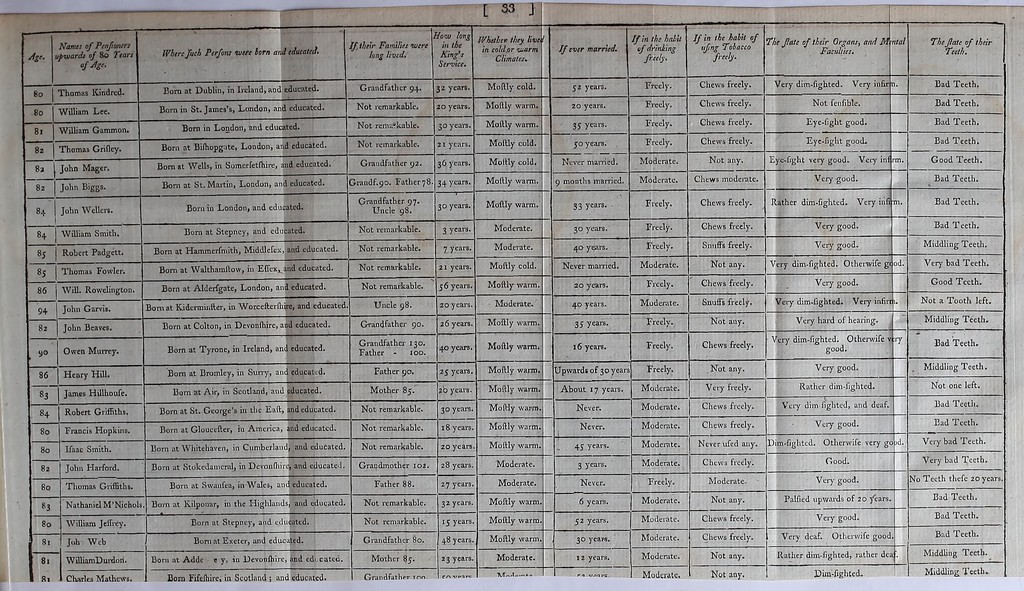 [ 33 ]
Age. Names of Penſioners upwards of 80 Years of Age. Where ſuch Perſons were born and educated. If their Families were long lived. How long in the King's Service. Whether they lived in cold, or warm Climates. If ever married. If in the habit of drinking freely. If in the habit of uſing Tobacco freely. The ſtate of their Organs, and Mental Faculties. The ſtate of their Teeth.
80 Thomas Kindred. Born at Dublin, in Ireland, and educated. Grandfather 94. 32 years. Moſtly cold. 52 years. Freely. Chews freely. Very dim-ſighted. Very infirm. Bad Teeth.
80 William Lee. Born in St. James's, London, and educated. Not remarkable. 20 years. Moſtly warm. 20 years. Freely. Chews freely. Not ſenſible. Bad Teeth.
81 William Gammon. Born in London, and educated. Not remarkable. 30 years. Moſtly warm. 35 years. Freely. Chews freely. Eye-ſight good. Bad Teeth.
82 Thomas Griſley. Born at Biſhopgate, London, and educated. Not remarkable. 21 years. Moſtly cold. 50 years. Freely. Chews freely. Eye-ſight good. Bad Teeth.
82 John Mager. Born at Wells, in Somerſetſhire, and educated. Grandfather 92. 36 years. Moſtly cold. Never married. Moderate. Not any. Eye-ſight very good. Very infirm. Good Teeth.
82 John Biggs. Born at St. Martin, London, and educated. Grandf. 90. Father 78. 34 years. Moſtly warm. 9 months married. Moderate. Chews moderate. Very good. Bad Teeth.
84 John Wellers. Born in London, and educated. Grandfather 97. Uncle 98. 30 years. Moſtly warm. 33 years. Freely. Chews freely. Rather dim-ſighted. Very infirm. Bad Teeth.
84 William Smith. Born at Stepney, and educated. Not remarkable. 3 years. Moderate. 30 years. Freely. Chews freely. Very good. Bad Teeth.
85 Robert Padgett. Born at Hammerſmith, Middleſex, and educated. Not remarkable. 7 years. Moderate. 40 years. Freely. Snuffs freely. Very good. Middling Teeth.
85 Thomas Fowler. Born at Walthamſtow, in Eſſex, and educated. Not remarkable. 21 years. Moſtly cold. Never married. Moderate. Not any. Very dim-ſighted. Otherwiſe good. Very bad Teeth.
86 Will. Rowelington. Born at Alderſgate, London, and educated. Not remarkable. 56 years. Moſtly warm. 20 years. Freely. Chews freely. Very good. Good Teeth.
94 John Garvis. Born at Kiderminſter, in Worceſterſhire, and educated. Uncle 98. 20 years. Moderate. 40 years. Moderate. Snuffs freely. Very dim-ſighted. Very infirm. Not a Tooth left.
82 John Beaves. Born at Colton, in Devonſhire, and educated. Grandfather 90. 26 years. Moſtly warm. 35 years. Freely. Not any. Very hard of hearing. Middling Teeth.
90 Owen Murrey. Born at Tyrone, in Ireland, and educated. Grandfather 130. Father - 100. 40 years. Moſtly warm. 16 years. Freely. Chews freely. Very dim-ſighted. Otherwiſe very good. Bad Teeth.
86 Henry Hill. Born at Bromley, in Surry, and educated. Father 90. 25 years. Moſtly warm. Upwards of 30 years Freely. Not any. Very good. Middling Teeth.
83 James Hillhouſe. Born at Air, in Scotland, and educated. Mother 85. 20 years. Moſtly warm. About 17 years. Moderate. Very freely. Rather dim-ſighted. Not one left.
84 Robert Griffiths. Born at St. George's in the Eaſt, and educated. Not remarkable. 30 years. Moſtly warm. Never. Moderate. Chews freely. Very dim ſighted, and deaf. Bad Teeth.
80 Francis Hopkins. Born at Glouceſter, in America, and educated. Not remarkable. 18 years. Moſtly warm. Never. Moderate. Chews freely. Very good. Bad Teeth.
80 Iſaac Smith. Born at Whitehaven, in Cumberland, and educated. Not remarkable. 20 years. Moſtly warm. 45 years. Moderate. Never uſed any. Dim-ſighted. Otherwiſe very good. Very bad Teeth.
82 John Harford. Born at Stokedameral, in Devonſhire, and educated. Grandmother 102. 28 years. Moderate. 3 years. Moderate. Chews freely. Good. Very bad Teeth.
80 Thomas Griffiths. Born at Swanſea, in Wales, and educated. Father 88. 27 years. Moderate. Never. Freely. Moderate. Very good. No Teeth theſe 20 years.
83 Nathaniel M'Nichols. Born at Kilponar, in the Highlands, and educated. Not remarkable. 32 years. Moſtly warm. 6 years. Moderate. Not any. Palſied upwards of 20 years. Bad Teeth.
80 William Jeffrey. Born at Stepney, and educated. Not remarkable. 15 years. Moſtly warm. 52 years. Moderate. Chews freely. Very good. Bad Teeth.
81 Joh Web Born at Exeter, and educated. Grandfather 80. 48 years. Moſtly warm. 30 years. Moderate. Chews freely. Very deaf. Otherwiſe good. Bad Teeth.
81 William Durdon. Born at in Devonſhire, and educated. Mother 85. 23 years. Moderate. 12 years. Moderate. Not any. Rather dim-ſighted, rather deaf. Middling Teeth.
81 Charles Mathews. Born Fifeſhire, in Scotland; and educated. Grandfather 100. Moderate. Not any. Dim-ſighted. Middling Teeth.